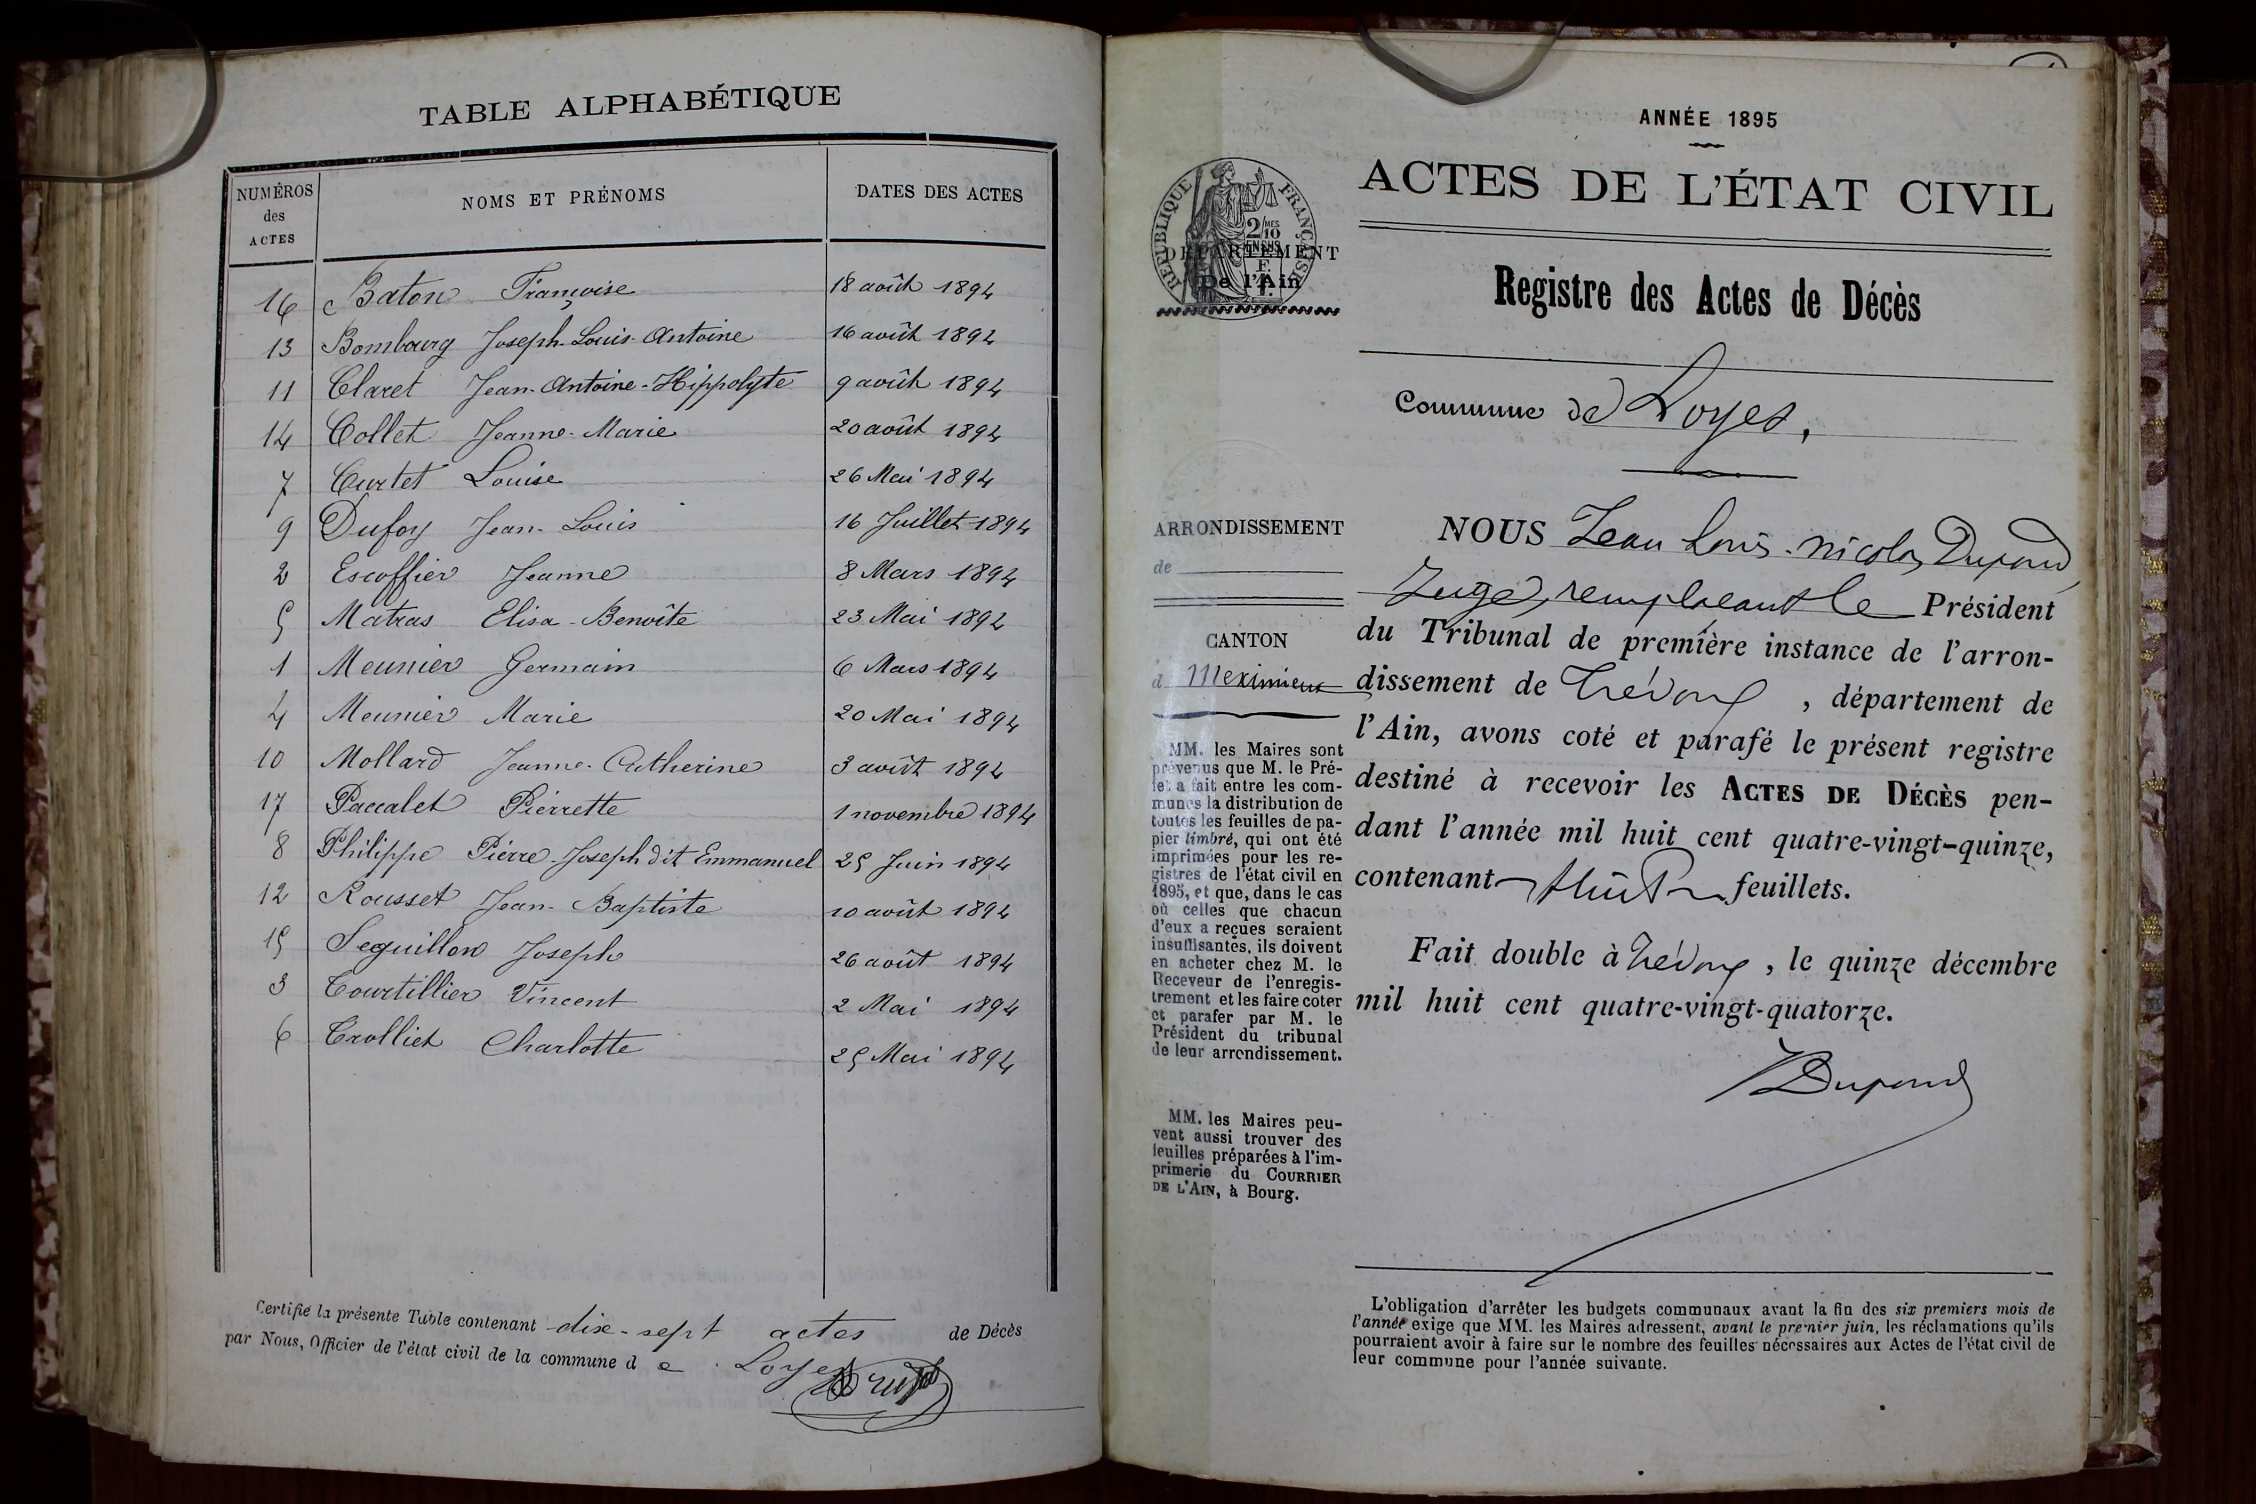 TABLE ALPHABÉTIQUE
NUMÉROS des ACTES NOMS ET PRÉNOMS DATES DES ACTES
16 Baton Françoise 18 août 1894
13 Bombourg Joseph-Louis-Antoine 16 août 1894
11 Claret Jean-Antoine-Hippolyte 9 août 1894
14 Collet Jeanne-Marie 20 août 1894
7 Curtet Louise 26 Mai 1894
9 Dufoy Jean-Louis 16 Juillet 1894
2 Escoffier Jeanne 8 Mars 1894
5 Matras Elisa-Benoîte 23 Mai 1894
1 Meunier Germain 6 Mars 1894
4 Meunier Marie 20 Mai 1894
10 Mollard Jeanne-Catherine 3 août 1894
17 Paccalet Pierrette 1 novembre 1894
8 Philippe Pierre-Joseph dit Emmanuel 25 Juin 1894
12 Rousset Jean-Baptiste 10 août 1894
15 Seguillon Joseph 26 août 1894
3 Tourtillier Vincent 2 Mai 1894
6 Trolliet Charlotte 25 Mai 1894
Certifié la présente Table contenant dix-sept actes de Décès
par Nous, Officier de l'état civil de la commune de Loyes
ANNÉE 1895
ACTES DE L'ÉTAT CIVIL
RÉPUBLIQUE FRANÇAISE
2/10 MES
EN SUS
DÉPARTEMENT
De l'Ain
Registre des Actes de Décès
Commune de Loyes,
ARRONDISSEMENT
de
CANTON
d Meximieux
MM. les Maires sont
prévenus que M. le Pré-
fet a fait entre les com-
munes la distribution de
toutes les feuilles de pa-
pier timbré, qui ont été
imprimées pour les re-
gistres de l'état civil en
1895, et que, dans le cas
où celles que chacun
d'eux a reçues seraient
insuffisantes, ils doivent
en acheter chez M. le
Receveur de l'enregis-
trement et les faire coter
et parafer par M. le
Président du tribunal
de leur arrondissement.
MM. les Maires peu-
vent aussi trouver des
feuilles préparées à l'im-
primerie du COURRIER
DE L'AIN, à Bourg.
NOUS Jean Louis-Nicolas Dupond
Juge, remplaçant le Président
du Tribunal de première instance de l'arron-
dissement de Trévoux, département de
l'Ain, avons coté et parafé le présent registre
destiné à recevoir les ACTES DE DÉCÈS pen-
dant l'année mil huit cent quatre-vingt-quinze,
contenant huit feuillets.
Fait double à Trévoux, le quinze décembre
mil huit cent quatre-vingt-quatorze.
Dupond
L'obligation d'arrêter les budgets communaux avant la fin des six premiers mois de
l'année exige que MM. les Maires adressent, avant le premier juin, les réclamations qu'ils
pourraient avoir à faire sur le nombre des feuilles nécessaires aux Actes de l'état civil de
leur commune pour l'année suivante.